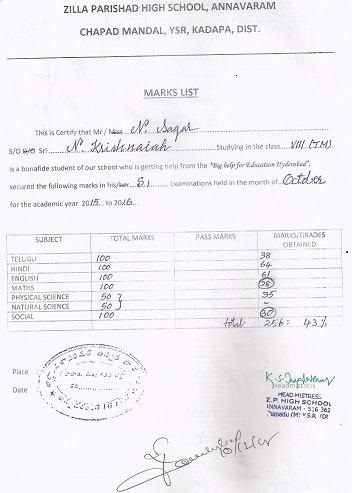 ZILLA PARISHAD HIGH SCHOOL, ANNAVARAM
CHAPAD MANDAL, YSR, KADAPA, DIST.
MARKS LIST
This is Certify that Mr / Miss N. Sagar
S/O D/O Sri N. Krishnaiah Studying in the class VIII (T.M)
is a bonafide student of our school who is getting help from the "Big help for Education Hyderabad",
secured the following marks in his/her S.1 Examinations held in the month of October
for the academic year 2015 to 2016
SUBJECT TOTAL MARKS PASS MARKS MARKS/GRADES OBTAINED
TELUGU 100 38
HINDI 100 64
ENGLISH 100 61
MATHS 100 28
PHYSICAL SCIENCE 50 35
NATURAL SCIENCE 50 -
SOCIAL 100 30
total 256 = 43%
Place
Date
Headmistress
HEAD MISTRESS
Z.P. HIGH SCHOOL
ANNAVARAM - 516 362